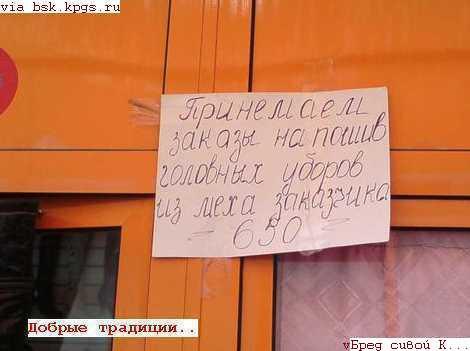 via bsk.kpgs.ru
Принемаем
заказы на пошив
головных уборов
из меха заказчика
= 650 =
Добрые традиции..
vБред сивой К...